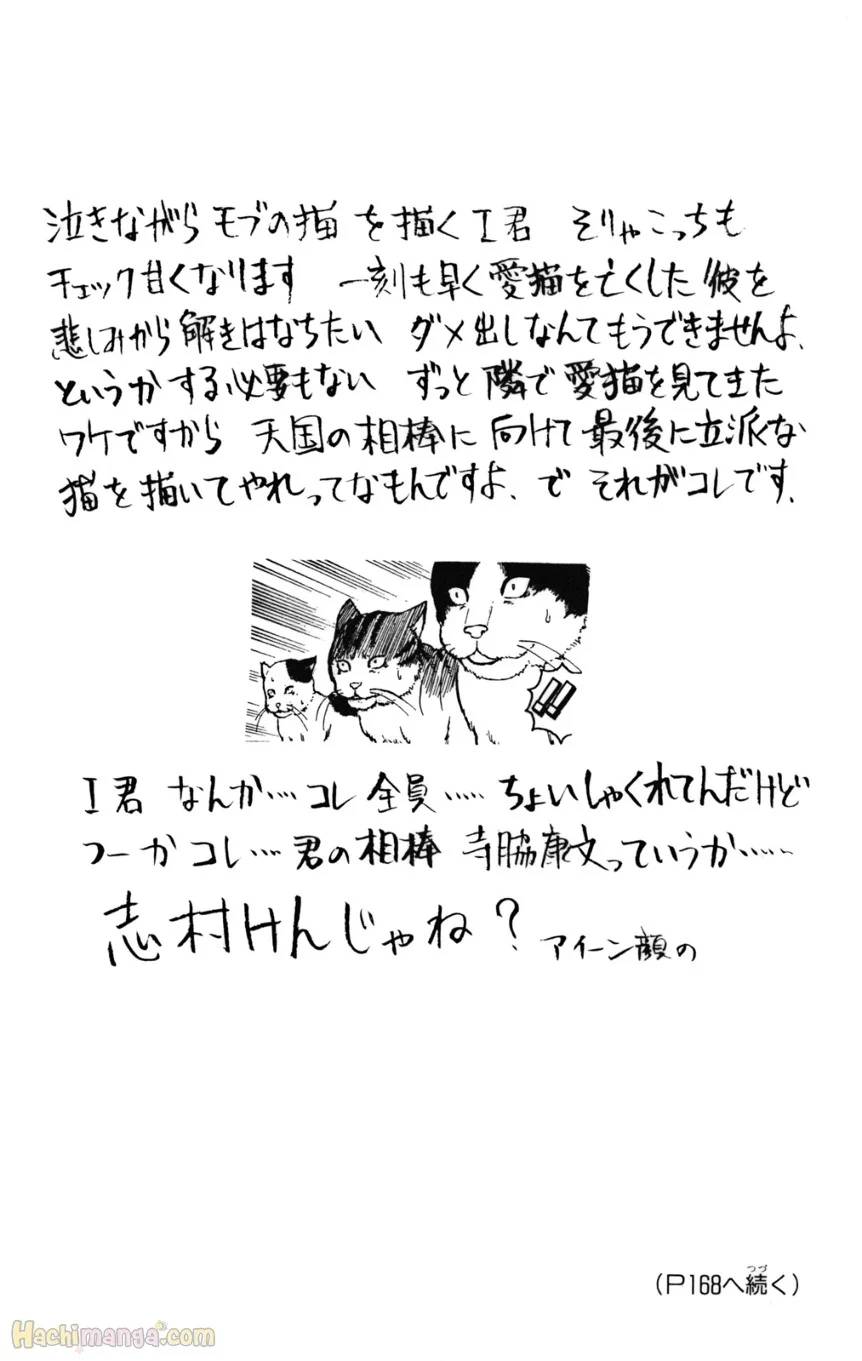 泣きながらモブの猫を描くI君 そりゃこっちも
チェック甘くなります 一刻も早く愛猫を亡くした彼を
悲しみから解きはなちたい ダメ出しなんてもうできませんよ、
というかする必要もない ずっと隣で愛猫を見てきた
ワケですから 天国の相棒に向けて最後に立派な
猫を描いてやれってなもんですよ、で それがコレです、
!!
I君 なんか…コレ全員……ちょいしゃくれてんだけど
つーかコレ…君の相棒 寺脇康文っていうか……
志村けんじゃね？ アイーン顔の
(P168へ続く)
つづ
Hachimanga.com